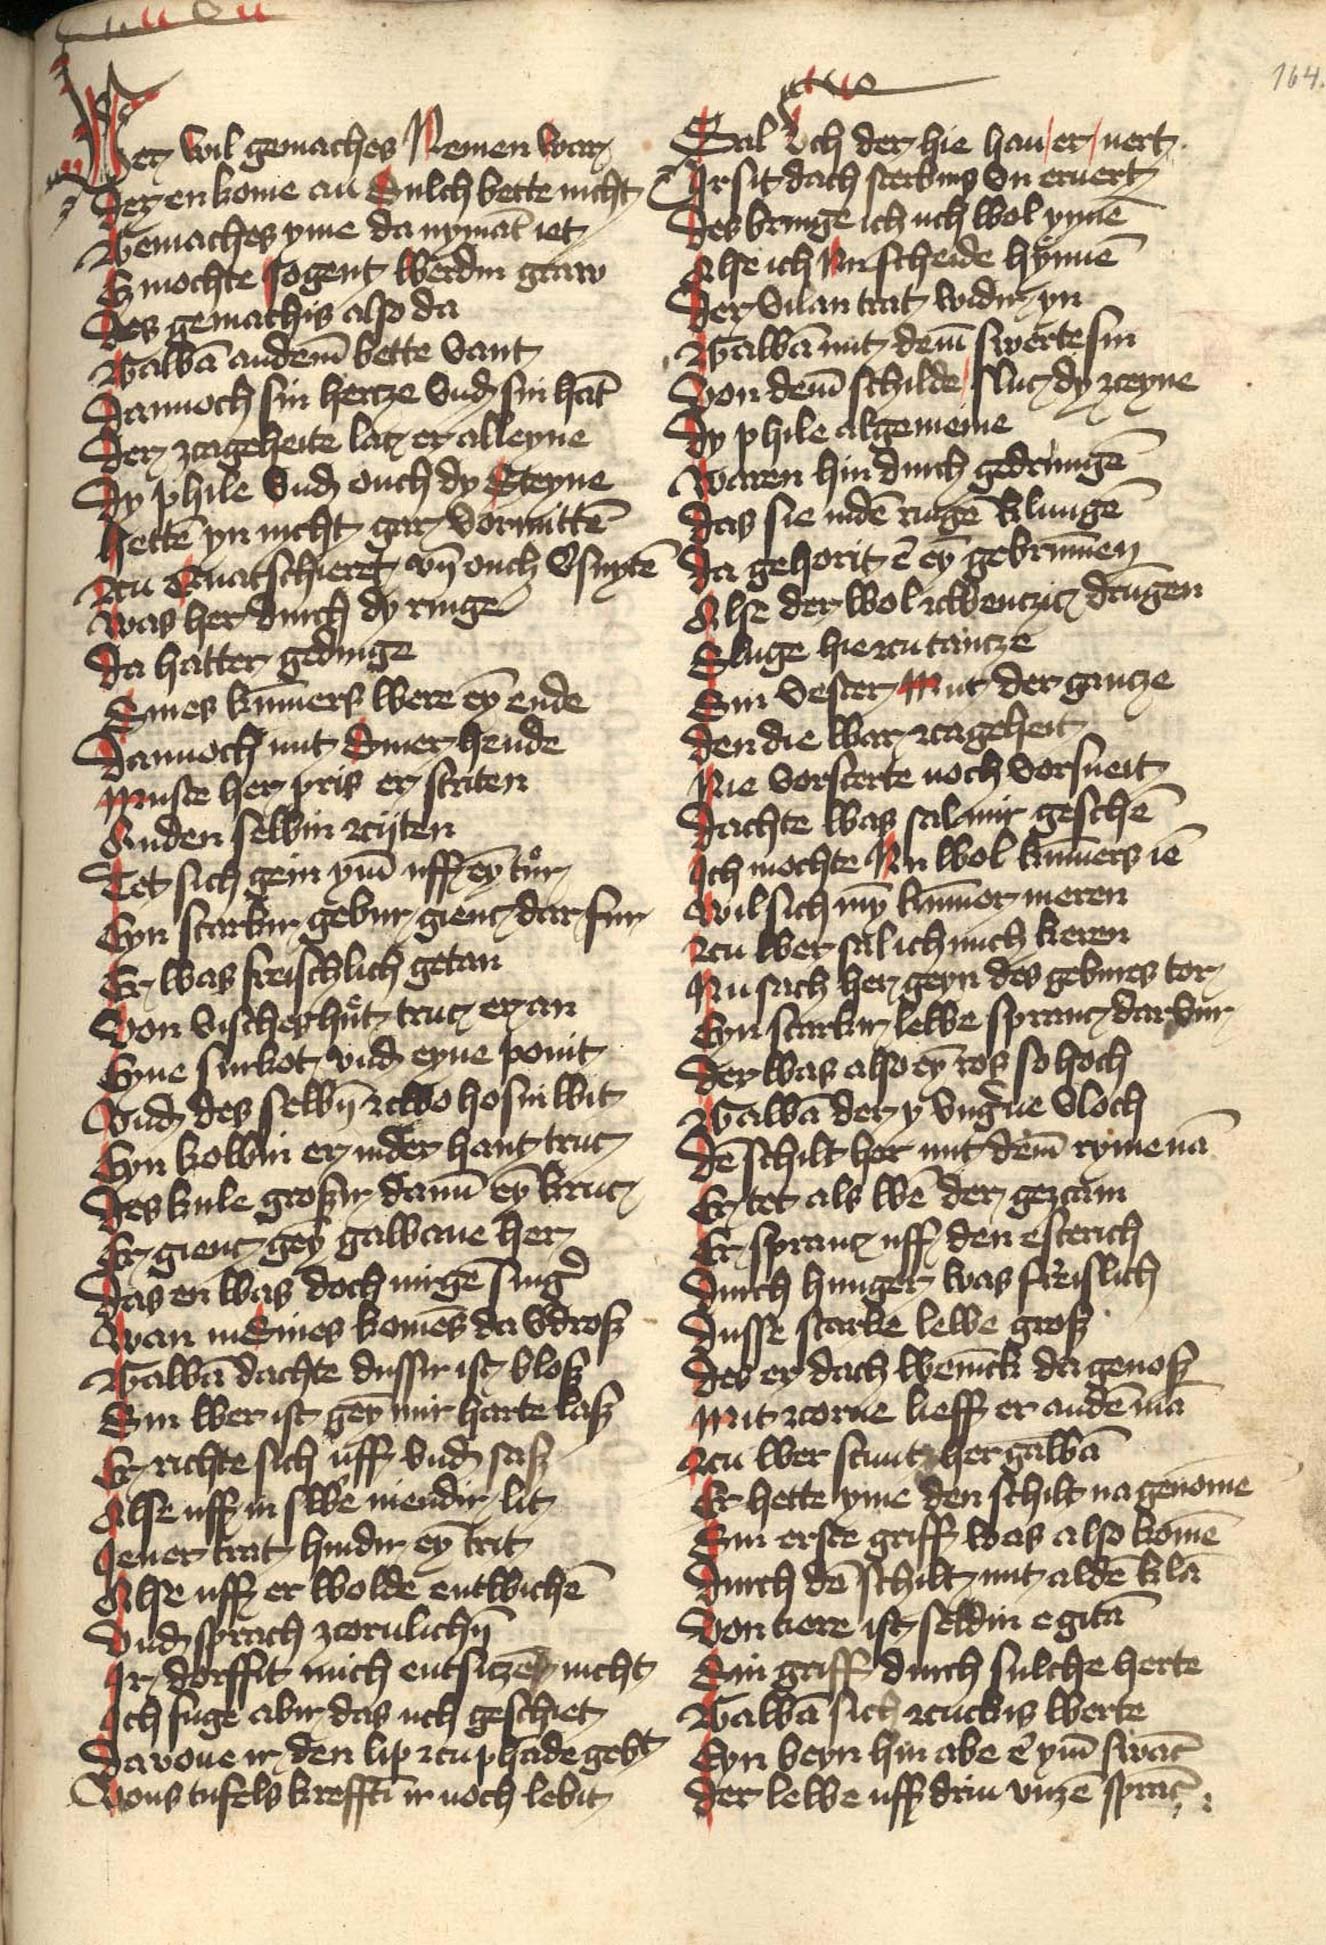 164.
Wer wil gemaches Nemen war
der en kome an Sulch bette nicht
Gemaches yme da nymāt iet
Es mochte sogent werdin graw
Des gemachis also da
Gawā an dem̄ bette vant
Dannoch sin hercze vnd sin hāt
Der zcageheite lac er alleyne
Dy phile vnd ouch dy Steyne
hettē yn nicht gar vormittē
was her durch dy ringe
Da hatter gedinge
Sines kūmers were eȳ ende
Dannoch mit Siner hende
Muste her pris er striten
An den selbin zcijten
Tet sich gein ym̄ uff eȳ tuͦr
Eyn starkir gebur gienc dar fur
Er was freischlich getan
Von vischeshuͤt truc er an
Eyne surkot vnd eyne ponit
Vnd des selbin zcwo hosin wit
Eyn kolbin er in der hant truc
Des kule groszir dann̄ eȳ kruc
Er gienc geȳ gawane her
Das en was doch nirgē sin g̾
Wan in Sines komēs da v̾drosz
Gawā dachte dussir ist blosz
Sin wer ist geȳ mir harte lasz
Er richte sich uff vnd sasz
Alse uff in swe niendir lit
Jener trat hindir eȳ trit
Alse uff er wolde entwichē
Vnd sprach zcornlichī
Ir dorffit mich entsitzen nicht
Ich fuge abir das uch geschiet
Da vone ir den lip zcu phāde gebit
Vons tufels krefftī ir noch lebit
Sal Vch der hie han er nert
Ir sit dach sterbins vn erwert
Des bringē ich uch wol ynnē
Alse ich Nu scheide hynnē
Der vilan trat widir yn
Gawā mit dem̄ swerte sin
Von dem̄ schilde sluc dy zceyne
Dy phile algemeine
Waren hin durch gedrungē
Das sie in dē ringē klungē
Da gehorit ē eȳ gebrūmen
Alse der wol zcwenczic drūgen
Sluge hie zcu tancze
Sin vester Mut der gancze
Den die war zcageheit
Nie vorscerte noch vorsneit
Dachte was sal mir geschē
Ich mochte Nu wol kūmers iē
Wil sich mȳ kūmer meren
Zcu wer sal ich mich keren
Nu sach her geyn des geburs tor
Eyn starkir lewe spranc dar vur
Der was also eȳ ros so hoch
Gawā der y vng̾ne vloch
Dē schilt her mit dem̄ ryme nā
Er tet als wē der gezam
Er spranc uff den esterich
Durch hunger was freislich
Dusse starke lewe grosz
Des er dach wenīck da genosz
Mit zcorne lieff er an dē mā
Zcu wer stunt her gawā
Er hette yme den schilt na genōme
Sin erste griff was also komē
Durch dē schilt mit aldē klā
Von tiere ist seldin e gitā
Sin griff durch sulche herte
Gawā sich zcuckis werte
Eyn beyn hin abe ē ym̄ swāc
Der lewe uff drin vuzē sprāc :